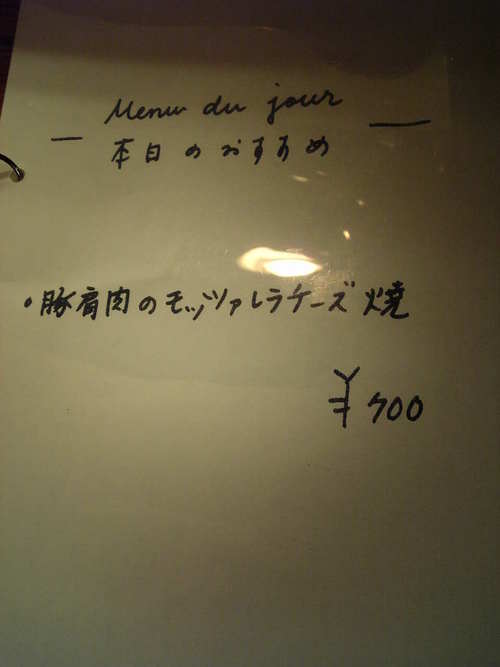 Menu du jour
本日のおすすめ
・豚肩肉のモッツァレラチーズ焼
¥700